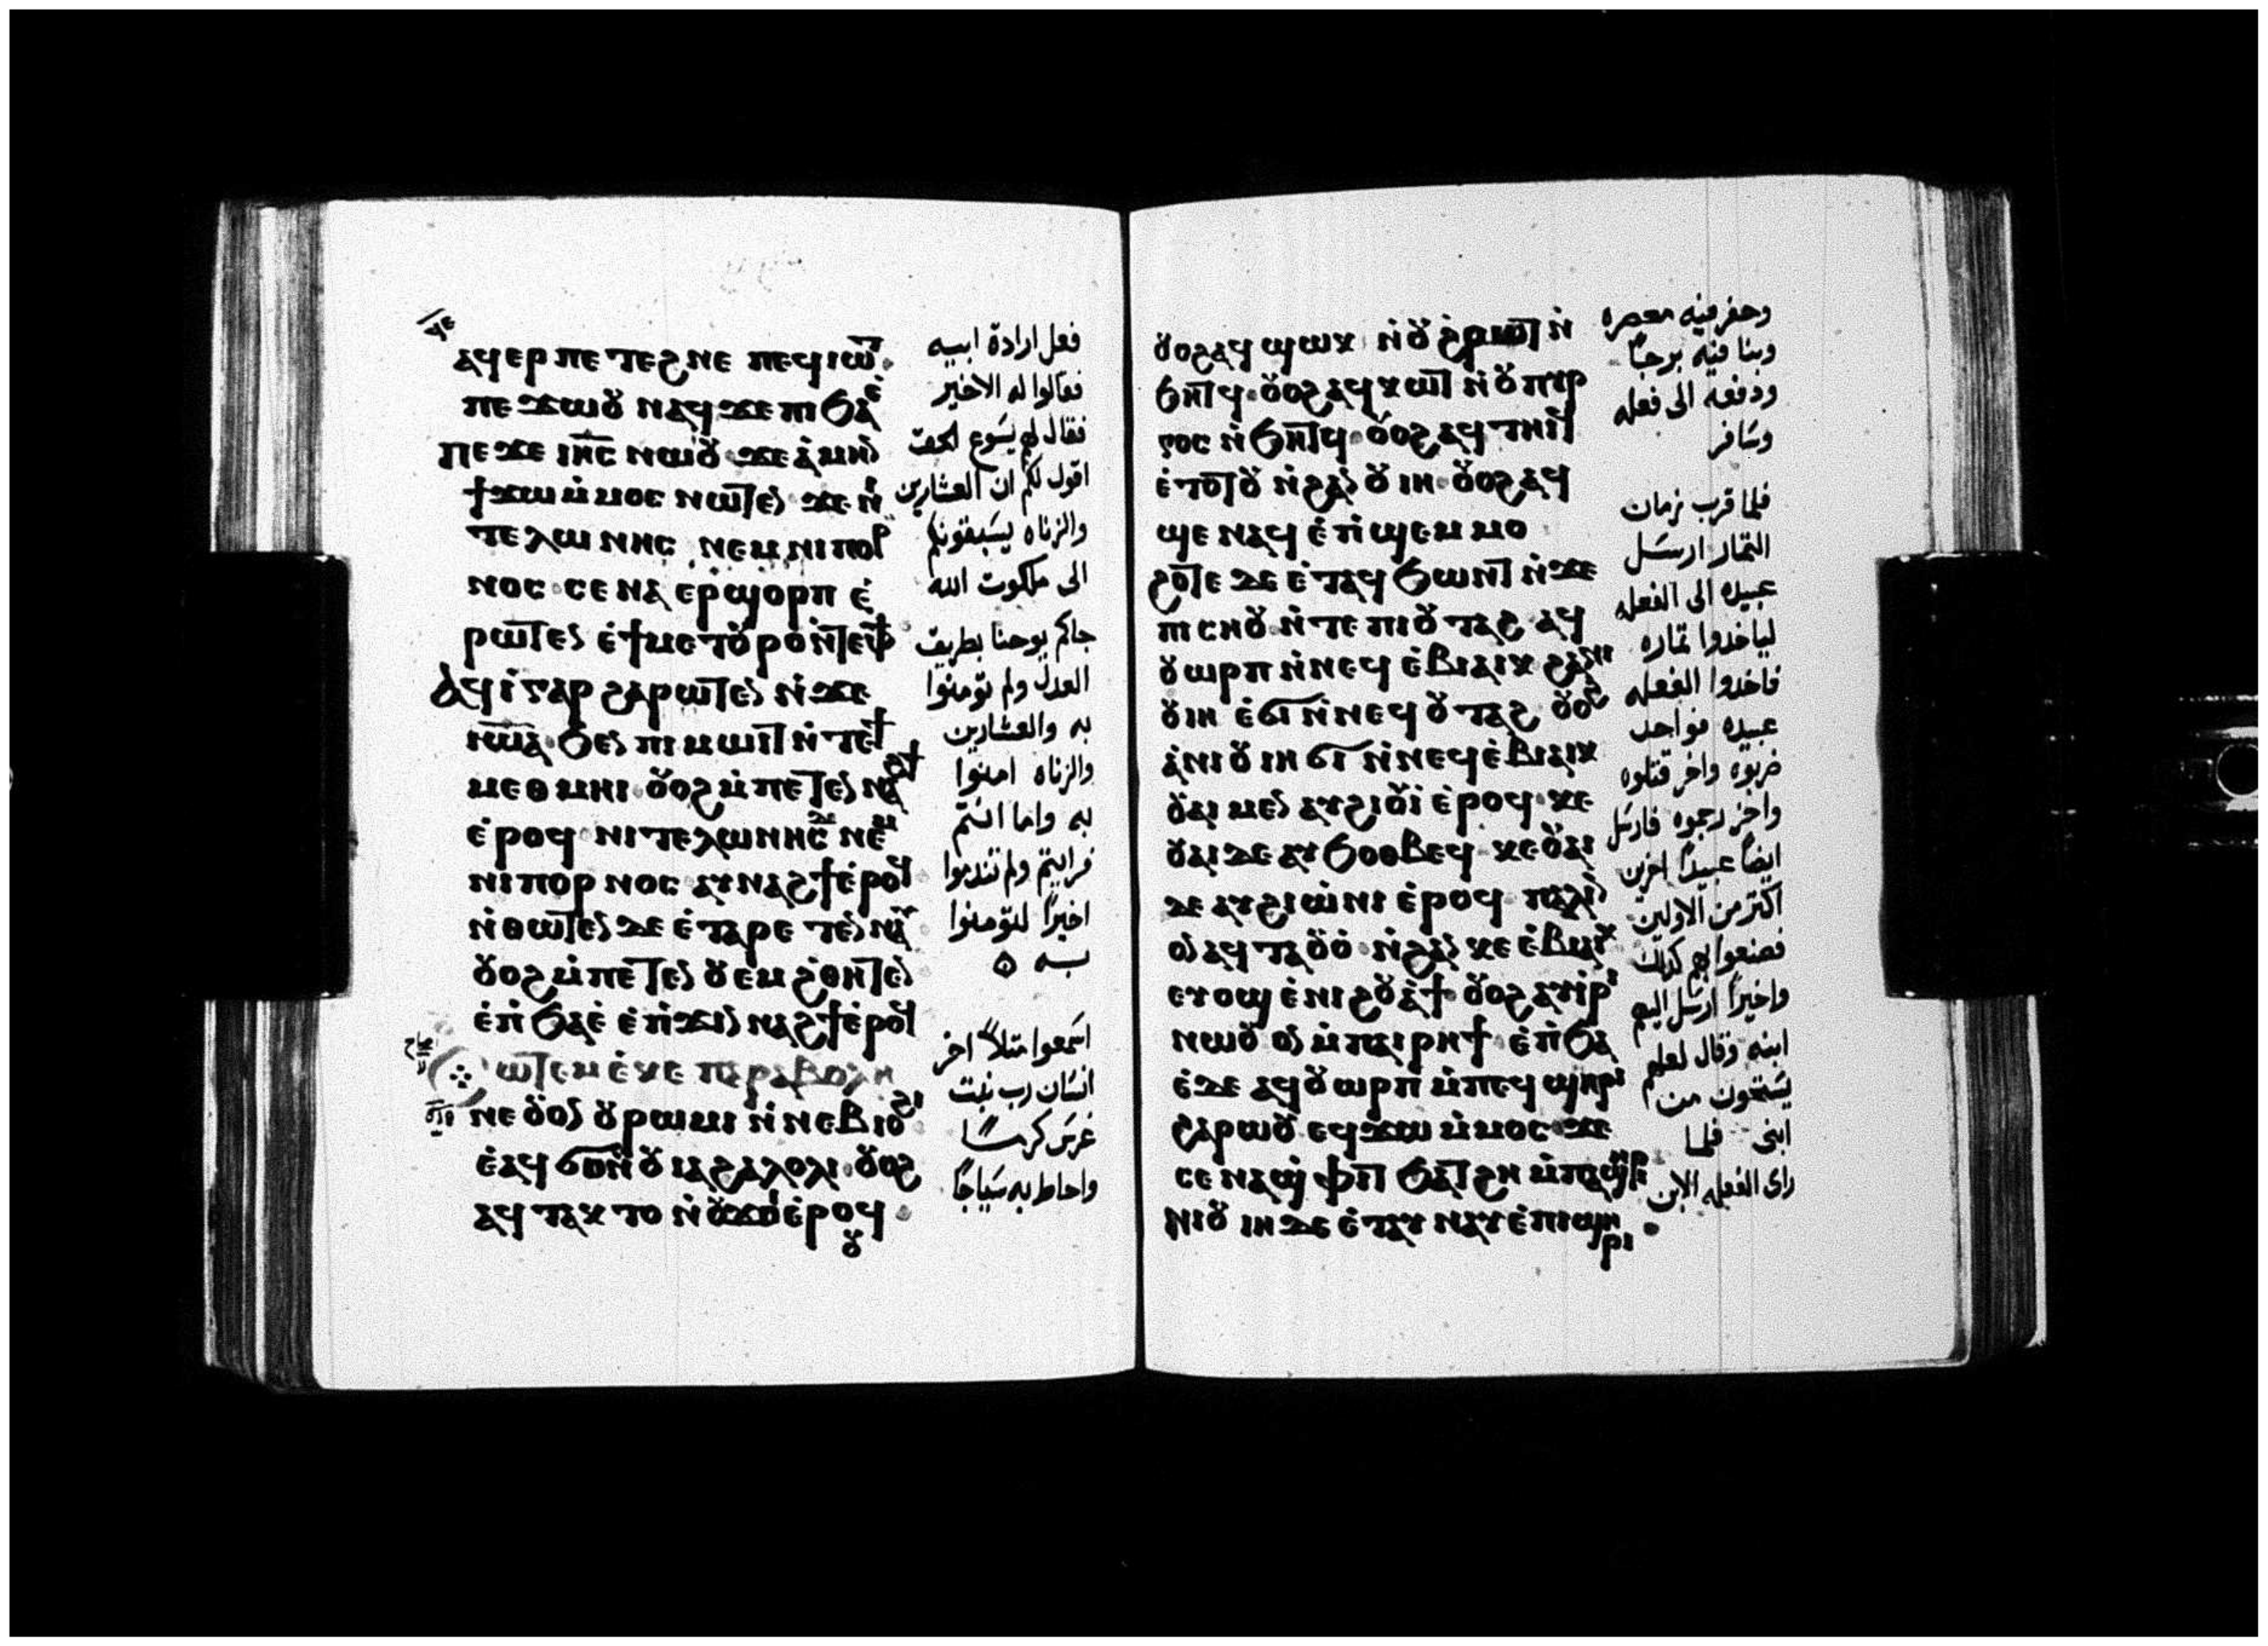 ϥⲉ
ⲁϥⲉⲣ ⲡⲉ ⲧⲉϩⲛⲉ ⲡⲉϥⲓⲱⲧ
ⲡⲉϫⲱⲟⲩ ⲛⲁϥ ϫⲉ ⲡⲓϧⲁⲉ̀
ⲡⲉϫⲉ ⲓⲏ̅ⲥ̅ ⲛⲱⲟⲩ ϫⲉ ⲁ̀ⲙⲏⲛ
ϯϫⲱ ⲙ̀ⲙⲟⲥ ⲛⲱⲧⲉⲛ ϫⲉ ⲛⲓ
ⲧⲉⲗⲱⲛⲏⲥ ⲛⲉⲙ ⲛⲓⲡⲟⲣ
ⲛⲟⲥ ⲥⲉⲛⲁ ⲉⲣϣⲟⲣⲡ ⲉ̀
ⲣⲱⲧⲉⲛ ⲉ̀ϯⲙⲉⲧⲟⲩⲣⲟ ⲛ̀ⲧⲉⲫϯ
ⲁϥⲓ̀ ⲅⲁⲣ ϩⲁⲣⲱⲧⲉⲛ ⲛ̀ϫⲉ
ⲓⲱ̅ⲁ̅ ϧⲉⲛ ⲡⲓⲙⲱⲓⲧ ⲛ̀ⲧⲉϯ
ⲙⲉⲑⲙⲏⲓ ⲟⲩⲟϩ ⲙ̀ⲡⲉⲧⲉⲛⲛⲁϩϯ
ⲉ̀ⲣⲟϥ ⲛⲓⲧⲉⲗⲱⲛⲏⲥ ⲇⲉ ⲛⲉⲙ
ⲛⲓⲡⲟⲣⲛⲟⲥ ⲁⲩⲛⲁϩϯ ⲉ̀ⲣⲟϥ
ⲛ̀ⲑⲱⲧⲉⲛ ⲇⲉ ⲉ̀ⲧⲁⲣⲉⲧⲉⲛⲛⲁⲩ
ⲟⲩⲟϩ ⲙ̀ⲡⲉⲧⲉⲛ ⲟⲩⲉⲙ ϩ̀ⲑⲏⲧⲉⲛ
ⲉ̀ⲡ̀ϧⲁⲉ̀ ⲉ̀ⲡ̀ϫⲓⲛⲛⲁϩϯ ⲉ̀ⲣⲟϥ
ⲥⲱⲧⲉⲙ ⲉ̀ⲕⲉ ⲡⲁⲣⲁⲃⲟⲗⲏ
ⲛⲉ ⲟⲩⲟⲛ ⲟⲩⲣⲱⲙⲓ ⲛ̀ⲛⲉⲃⲓⲟϩⲓ
ⲉ̀ⲁϥϭⲟ ⲛ̀ⲟⲩⲓⲁϩⲁⲗⲟⲗⲓ ⲟⲩⲟϩ
ⲁϥⲧⲁⲕⲧⲟ ⲛ̀ⲟⲩϫⲟⲓ ⲉ̀ⲣⲟϥ
ⲟⲩ
فعل ارادة ابيه
فقالوا له الاخير
فقال لهم يسوع الحق
اقول لكم ان العشارين
والزناه يسبقونكم
الى ملكوت الله
جاكم يوحنا بطريق
العدل ولم تومنوا
به والعشارين
والزناه امنوا
به واما انتم
فرايتم ولم تندموا
اخيراً لتومنوا
به
اسمعوا مثلاً اخر
انسان رب بيت
غرس كرمـًا
واحاط به سياجًا
ⲟⲩⲟϩ ⲁϥϣⲱⲕ ⲛ̀ⲟⲩϩ̀ⲣⲱⲧ ⲛ̀
ϧⲏⲧϥ ⲟⲩⲟϩ ⲁϥⲕⲱⲧ ⲛ̀ⲟⲩⲡⲩⲣ
ⲅⲟⲥ ⲛ̀ϧⲏⲧϥ ⲟⲩⲟϩ ⲁϥⲧⲏⲓϥ
ⲉ̀ⲧⲟⲧⲟⲩ ⲛ̀ϩⲁⲛⲟⲩⲓⲏ ⲟⲩⲟϩ ⲁϥ
ϣⲉ ⲛⲁϥ ⲉ̀ⲡ̀ϣⲉⲙⲙⲟ
ϩⲟⲧⲉ ⲇⲉ ⲉ̀ⲧⲁϥϧⲱⲛⲧ ⲛ̀ϫⲉ
ⲡⲓⲥⲏⲟⲩ ⲛ̀ⲧⲉ ⲡⲓⲟⲩⲧⲁϩ ⲁϥ
ⲟⲩⲱⲣⲡ ⲛ̀ⲛⲉϥⲉ̀ⲃⲓⲁⲓⲕ ϩⲁ ⲛⲓ
ⲟⲩⲓⲏ ⲉ̀ϭⲓ ⲛ̀ⲛⲉϥⲟⲩⲧⲁϩ ⲟⲩⲟϩ
ⲁ̀ⲛⲓⲟⲩⲓⲏ ϭⲓ ⲛ̀ⲛⲉϥⲉ̀ⲃⲓⲁⲓⲕ
ⲟⲩⲁⲓ ⲙⲉⲛ ⲁⲩϩⲓⲟⲩⲓ̀ ⲉ̀ⲣⲟϥ ⲕⲉ
ⲟⲩⲁⲓ ⲇⲉ ⲁⲩϧⲟⲑⲃⲉϥ ⲕⲉⲟⲩⲁⲓ
ⲇⲉ ⲁⲩϩⲓⲱ̀ⲛⲓ ⲉ̀ⲣⲟϥ ⲡⲁⲗⲓ
ⲟⲛ ⲁϥⲧⲁⲟⲩⲟ̀ ⲛ̀ϩⲁⲛ ⲕⲉ ⲉ̀ⲃⲓⲁⲓⲕ
ⲉⲩⲟϣ ⲉ̀ⲛⲓϩⲟⲩⲁ̀ϯ ⲟⲩⲟϩ ⲁⲩⲓ̀ⲣⲓ
ⲛⲱⲟⲩ ⲟⲛ ⲙ̀ⲡⲁⲓⲣⲏϯ ⲉ̀ⲡ̀ϧⲁ
ⲉ̀ ⲇⲉ ⲁϥⲟⲩⲱⲣⲡ ⲙ̀ⲡⲉϥϣⲏⲣⲓ
ϩⲁⲣⲱⲟⲩ ⲉϥϫⲱ ⲙ̀ⲙⲟⲥ ϫⲉ
ⲥⲉⲛⲁϣ̀ⲫⲓⲧ ϧⲁⲧϩⲏ ⲙ̀ⲡⲁϣⲏⲣⲓ
ⲛⲓⲟⲩⲓⲏ ⲇⲉ ⲉ̀ⲧⲁⲩⲛⲁⲩ ⲉ̀ⲡⲓϣⲏ
ⲣⲓ
وحفر فيه معصره
وبنا فيه برجًا
ودفعه الى فعله
وسافر
فلما قرب زمان
الثمار ارسل
عبيده الى الفعله
لياخدوا ثماره
فاخدوا الفعله
عبيده فواحد
ضربوه واخر قتلوه
واخر رجموه فارسل
ايضاً عبيدًا اخرين
اكثر من الاولين
فصنعوا بهم كدلك
واخيرًا ارسل اليهم
ابنه وقال لعلهم
يستحون من
ابنى فلما
راى الفعله الابن